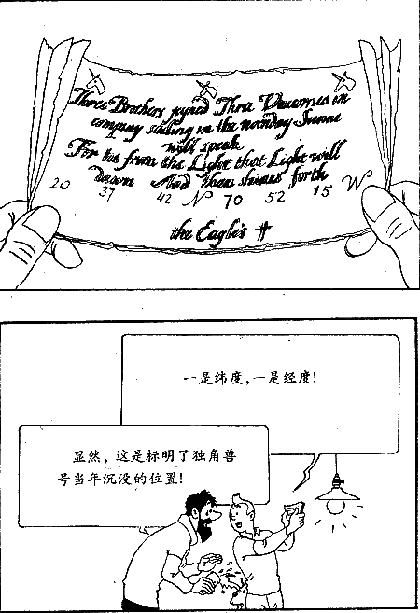 Three Brothers joyned Three Unicornes in
company sailing in the noonday Sunne
will speak
For tis from the Light that Light will
dawn And then shines forth
20 37 42 N 70 52 15 W
the Eagle's ✝
一是纬度，一是经度！
显然，这是标明了独角兽
号当年沉没的位置！